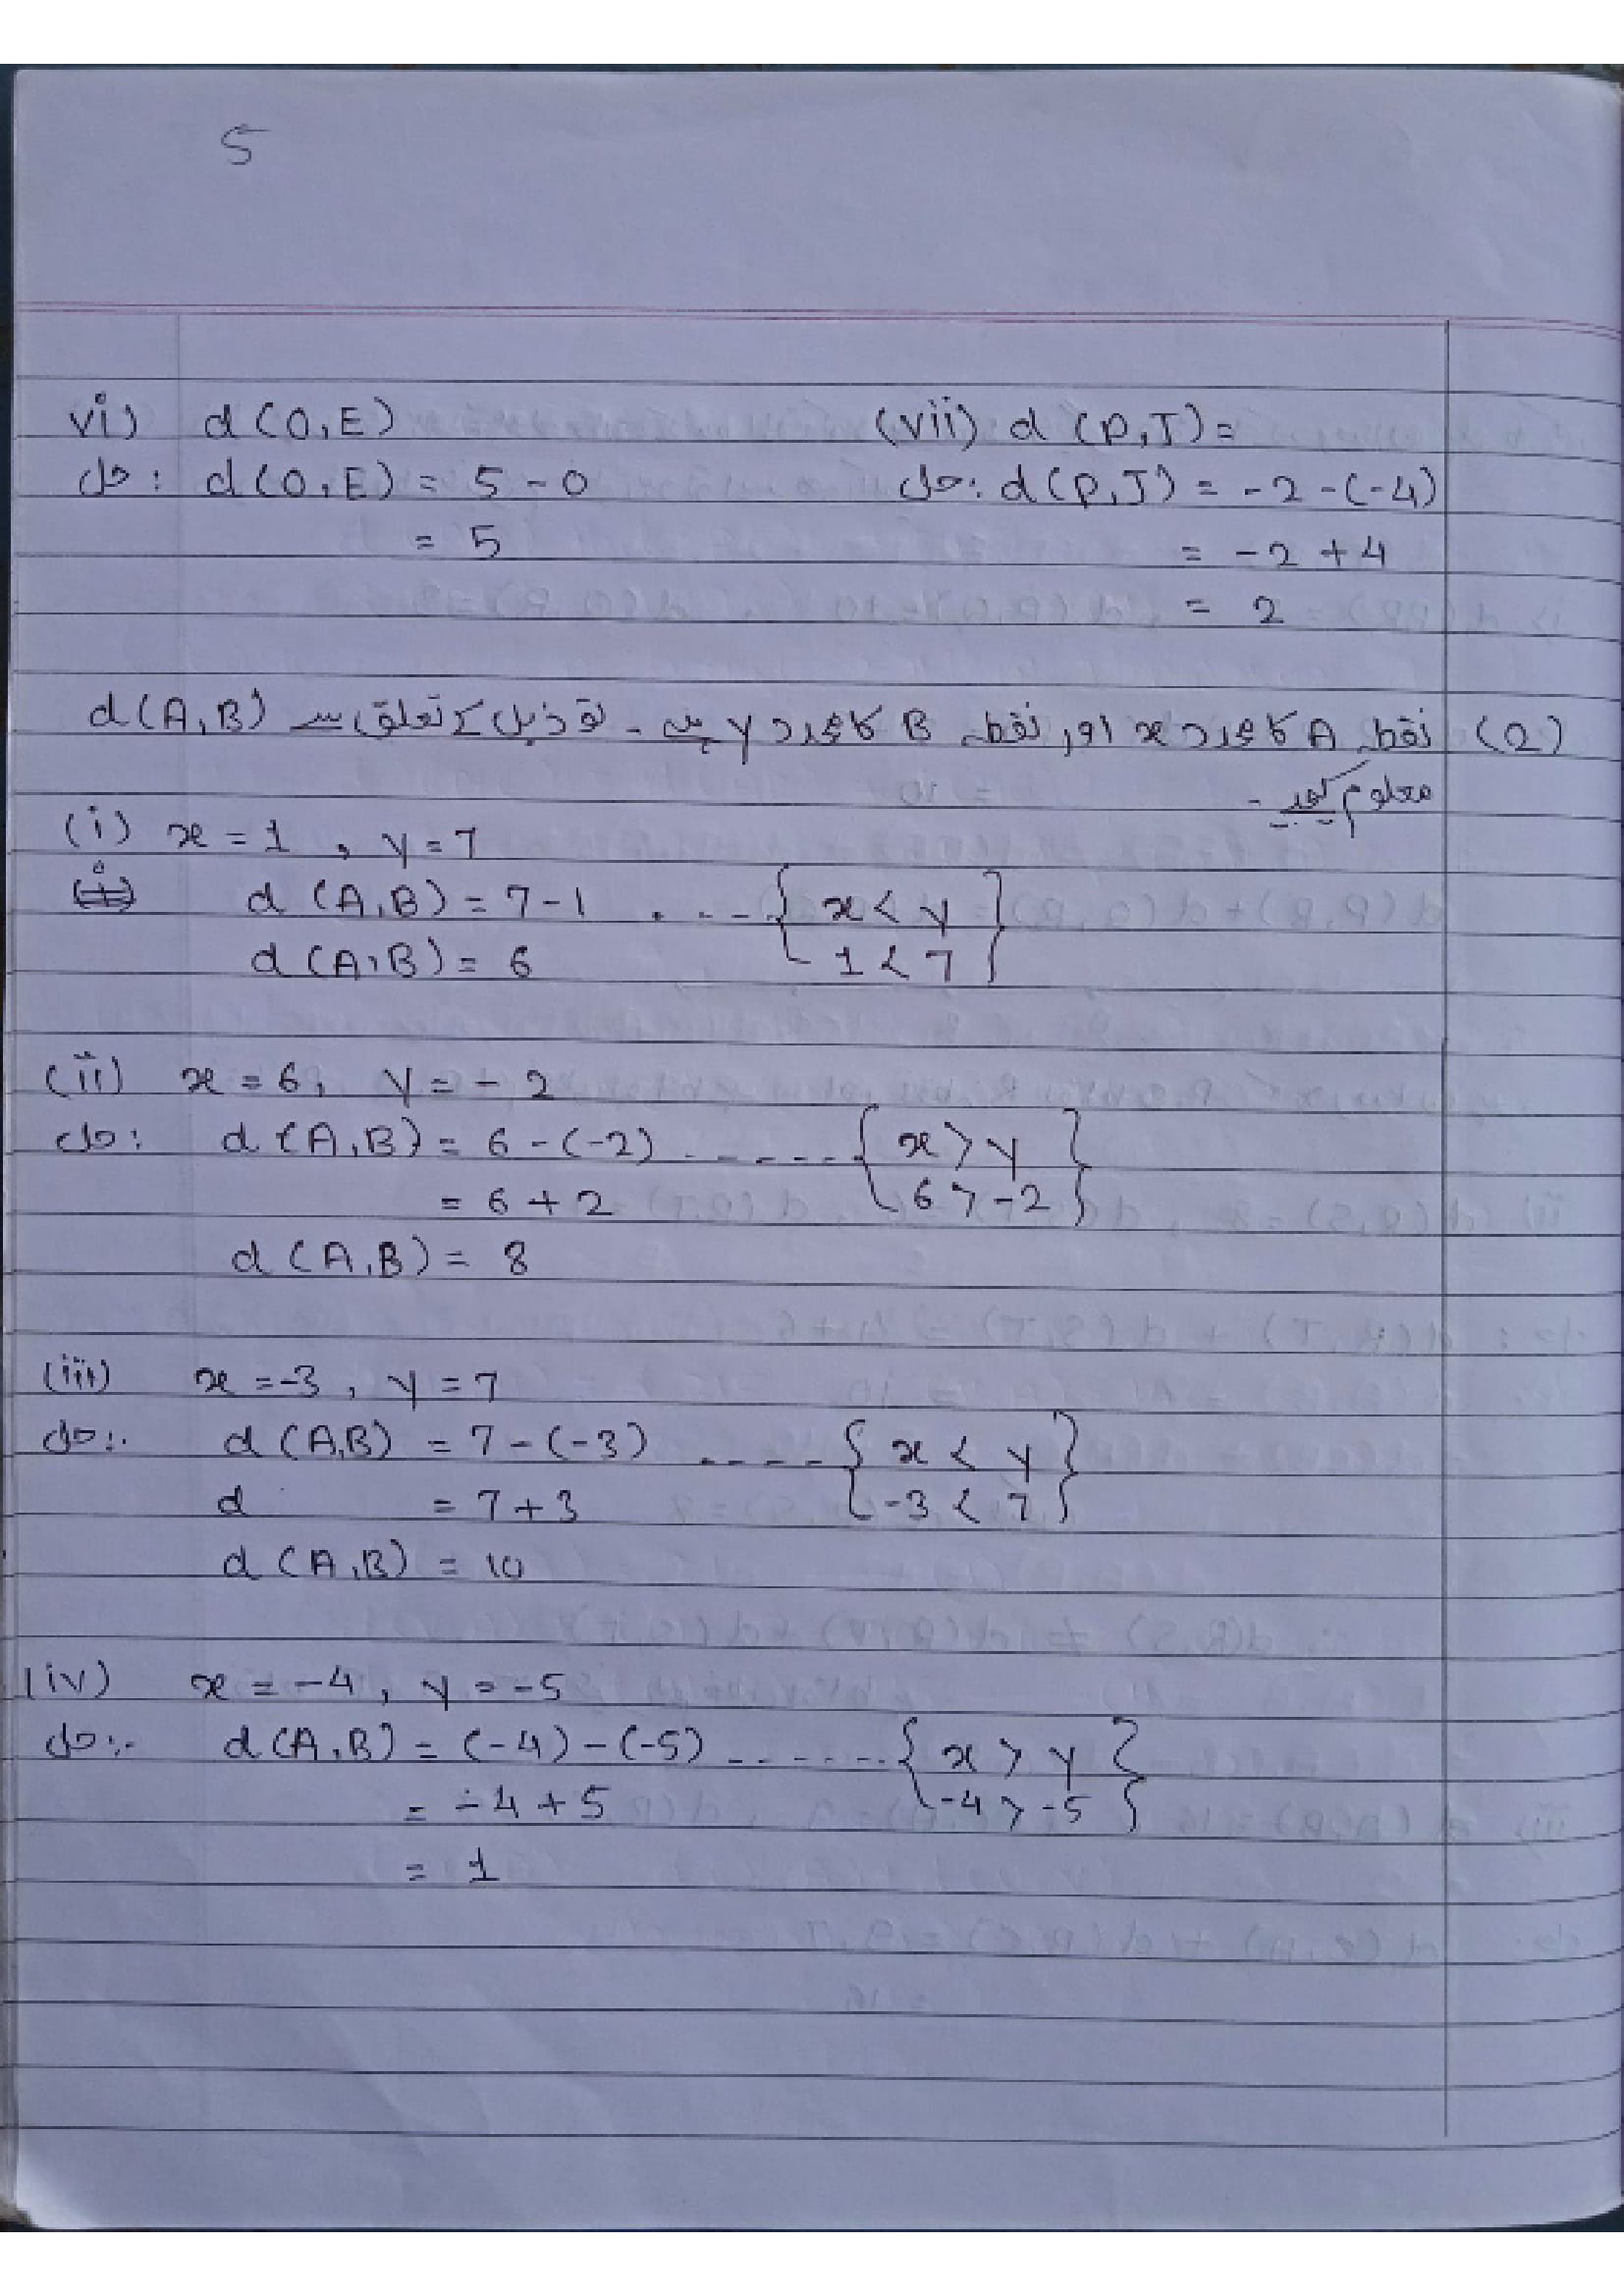 5
vi) d(O,E)
(vii) d (P,J)=
حل: d(O,E) = 5 - 0
= 5
حل: d(P,J) = -2-(-4)
= -2 + 4
= 2
(2) نقطہ A کا محدد x اور نقطہ B کا محدد y ہیں۔ تو ذیل کے تعلق سے d(A,B)
معلوم کیجیے۔
(i) x = 1 , y = 7
d (A,B) = 7-1 . --- { x < y
d (A,B) = 6 1 < 7 }
(ii) x = 6, y = - 2
حل: d (A,B) = 6 - (-2) ------ { x > y
= 6 + 2 6 > -2 }
d (A,B) = 8
(iii) x = -3 , y = 7
حل:. d (A,B) = 7-(-3) ---- { x < y
d = 7+3 -3 < 7 }
d (A,B) = 10
(iv) x = -4 , y = -5
حل:. d(A,B) = (-4)-(-5) ------ { x > y
= -4+5 -4 > -5 }
= 1